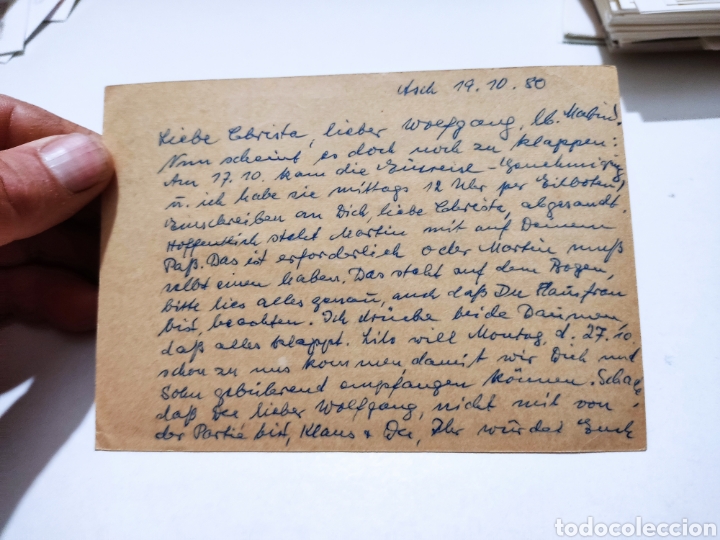 Asch 19.10.80
Liebe Christa, lieber Wolfgang, lb.
Nun scheint es doch noch zu klappen:
Am 17.10. kam die Einreise-Genehmigung
u. ich habe sie mittags 12 Uhr per Eilboten/
Einschreiben an Dich, liebe Christa, abgesandt.
Hoffentlich steht Martin mit auf Deinem
Paß. Das ist erforderlich oder Martin muß
selbst einen haben. Das steht auf dem Bogen,
bitte lies alles genau, auch daß Du Hausfrau
bist, beachten. Ich drücke beide Daumen
daß alles klappt. will Montag, d. 27.10
schon zu uns kommen, damit wir Dich und
Sohn gebührend empfangen können. Schade
daß Du lieber Wolfgang, nicht mit von
der Partie bist, Klaus + Du, Ihr würdet Euch
todocoleccion
todocoleccion.net